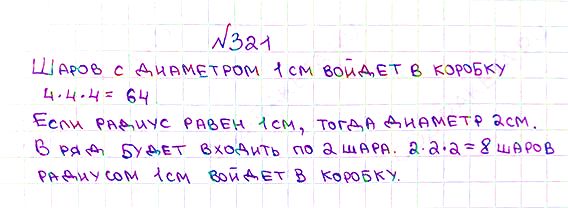 №321
Шаров с диаметром 1 см войдет в коробку
4·4·4 = 64
Если радиус равен 1 см, тогда диаметр 2 см.
В ряд будет входить по 2 шара. 2·2·2 = 8 шаров
радиусом 1 см войдет в коробку.